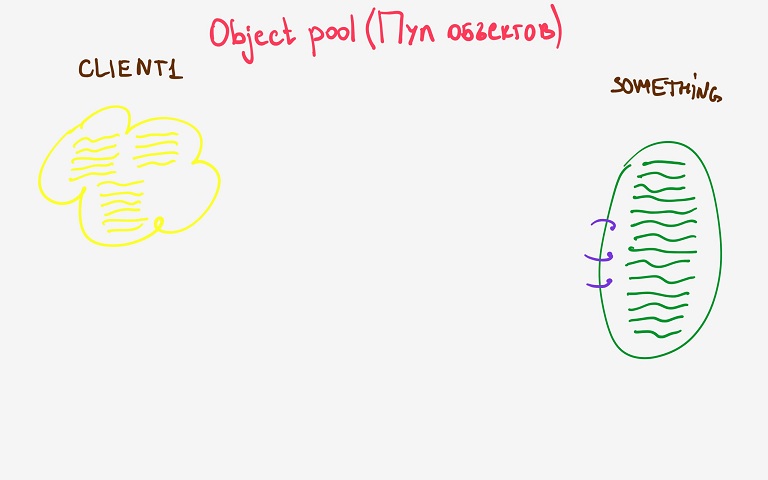 Object pool (Пул объектов)
CLIENT1
SOMETHING